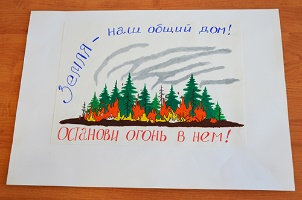 Земля - наш общий дом!
Останови огонь в нем!